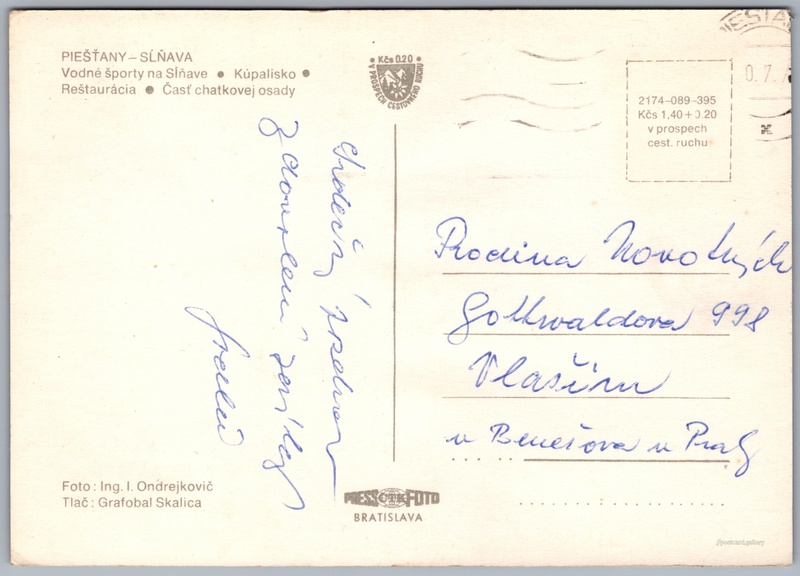 PIEŠŤANY – SĹŇAVA
Vodné športy na Sĺňave ● Kúpalisko ●
Reštaurácia ● Časť chatkovej osady
Kčs 0.20
V PROSPECH CESTOVNÉHO RUCHU
2174–089–395
Kčs 1,40 + 0.20
v prospech
cest. ruchu
Srdečný
zasílají
Rodina Novotných
Gottwaldova 998
Vlašim
u Benešova u Prahy
Foto : Ing. I. Ondrejkovič
Tlač : Grafobal Skalica
PRESS ČTK FOTO
BRATISLAVA